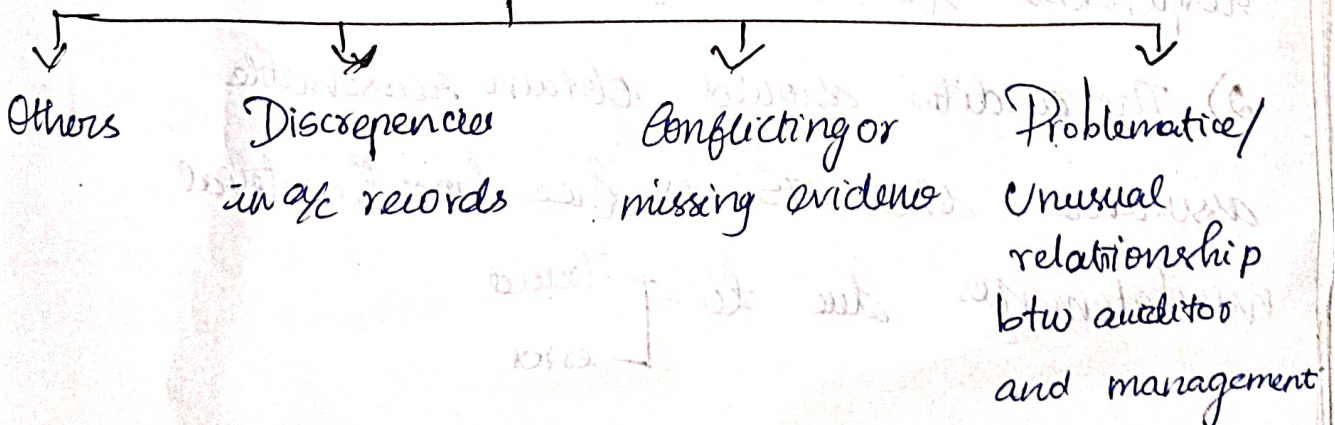 Others
Discrepencies
in a/c records
Conflicting or
missing evidenc
Problematice/
Unusual
relationship
btw auditor
and management